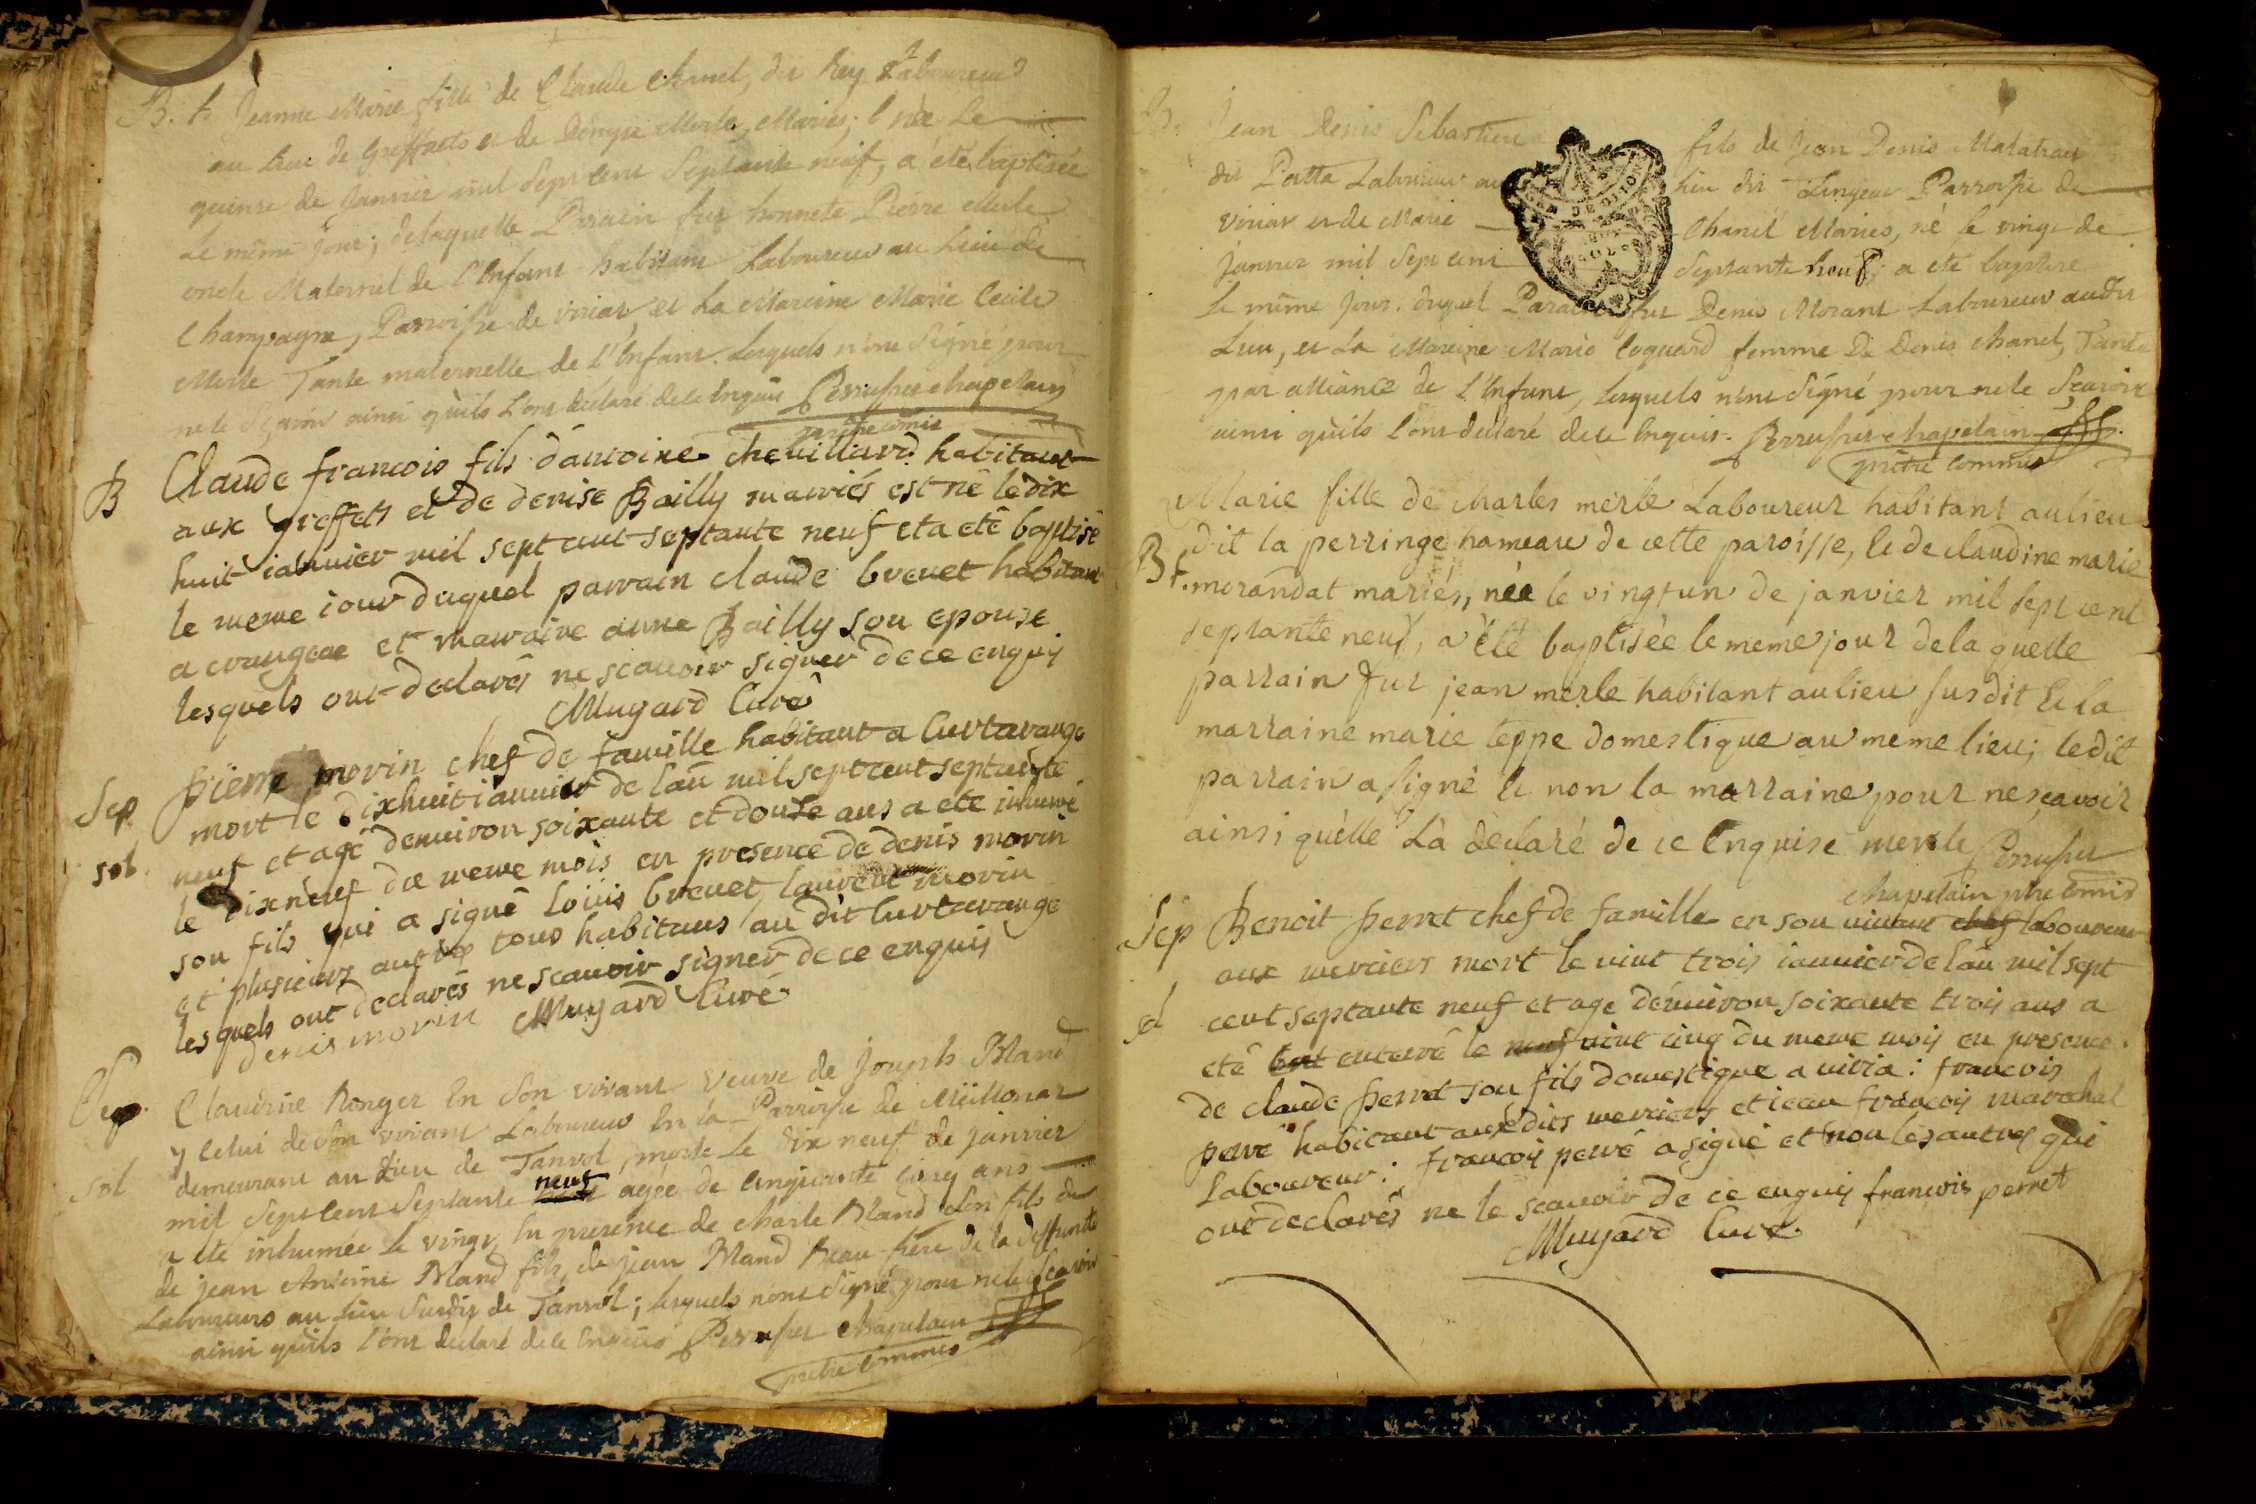 B. f. Jeanne Marie fille de Claude Chanel, dit Rey Laboureur
au lieu de Greffets et de Denyse Merle, Mariés; née le
quinze de Janvier mil Sept cent Septante neuf, a été baptisée
le même jour; delaquelle Parain fut honnete Pierre Merle
oncle Maternel de l'Enfant habitant Laboureur au Lieu de
Champagne, Parroisse de viriat, et La Mareine Marie Cecile
Merle Tante maternelle de l'Enfant. Lesquels n'ont Signé pour
ne le Sçavoir ainsi qu'ils L'ont declaré de ce Enquis chapelain
prêtre comis
B Claude francois fils d'antoine chevillard habitant
aux greffets et de denise Bailly mariés est né le dix
huit ianvier mil sept cent septante neuf et a eté baptisé
le meme iour duquel parrain claude brevet habitant
a crangeae et marraine anne Bailly son epouse
lesquels ont declarés ne scauoir signer de ce enquis
Mugard Curé
Sep pierre morin chef de famille habitant a Curtarange
mort le dixhuit ianuier de lan mil sept cent septante
sol. neuf et agé denuiron soixante et douze ans a eté inhumé
le dixneuf du meme mois en presence de denis morin
son fils qui a signé Loüis brevet, laurent morin
et plusieurs autres tous habitans au dit Curtarange
lesquels ont declarés ne scauoir signer de ce enquis
denis morin Mugard Curé
Sep. Claudine Ronger En Son vivant veuve de Joseph Bland
y celui de Son vivant Laboureur En la Parroisse de
sol demeurant au Lieu de Tanvol, morte le dix neuf de janvier
mil Sept Cent Septante neuf agée de Cinquante Cinq ans
a été inhumée le vingt En presence de Charle Bland Son fils
de jean Antoine Bland fils de jean Bland Beau-frère de la deffunte
Laboureurs au lieu Susdit de Tanvol; lesquels n'ont Signé pour ne le Scavoir
ainsi qu'ils l'ont declaré de ce Enquis chapelain
prêtre commis
B. Jean Denis Sebastien fils de Jean Denis
dit Patta Laboureur au lieu dit Lingeat Parroisse de
viriat et de Marie Chanel Mariés, né le vingt de
Janvier mil Sept cent Septante neuf; a été baptisé
le même jour. duquel Parain fut Denis Morant Laboureur audit
Lieu, et La Mareine Marie Coquard femme de Denis chanel, Tante
par alliance de L'Enfant, lesquels n'ont Signé pour ne le Sçavoir
ainsi qu'ils l'ont declaré de ce Enquis. chapelain
prêtre commis
Marie fille de charles merle Laboureur habitant au lieu
dit la perringe hameau de cette paroisse, & de claudine marie
B f. morandat mariés, née le vingt un de janvier mil sept cent
septante neuf, a été baptisée le meme jour de la quelle
parrain fut jean merle habitant au lieu susdit & la
marraine marie teppe domestique au meme lieu; le dit
parrain a signé & non la marraine pour ne sçavoir
ainsi qu'elle L'a declaré de ce Enquise merle
chapelain ptre comis
Sep Benoit perret chef de famille en son vivant laboureur
aux merciers mort le vint trois ianuier de lan mil sept
sol cent septante neuf et age denuiron soixante trois ans a
eté enterré le vint cinq du meme mois en presence
de claude perret son fils domestique a viria: francois
perré habitant aux dits merciers et iean francois marechal
Laboureur: francois perré a signé et non les autres qui
ont declarés ne le scauoir de ce enquis francois perret
Mugard Curé